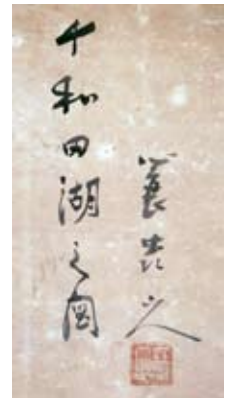 十和田湖之図
蓑虫山人